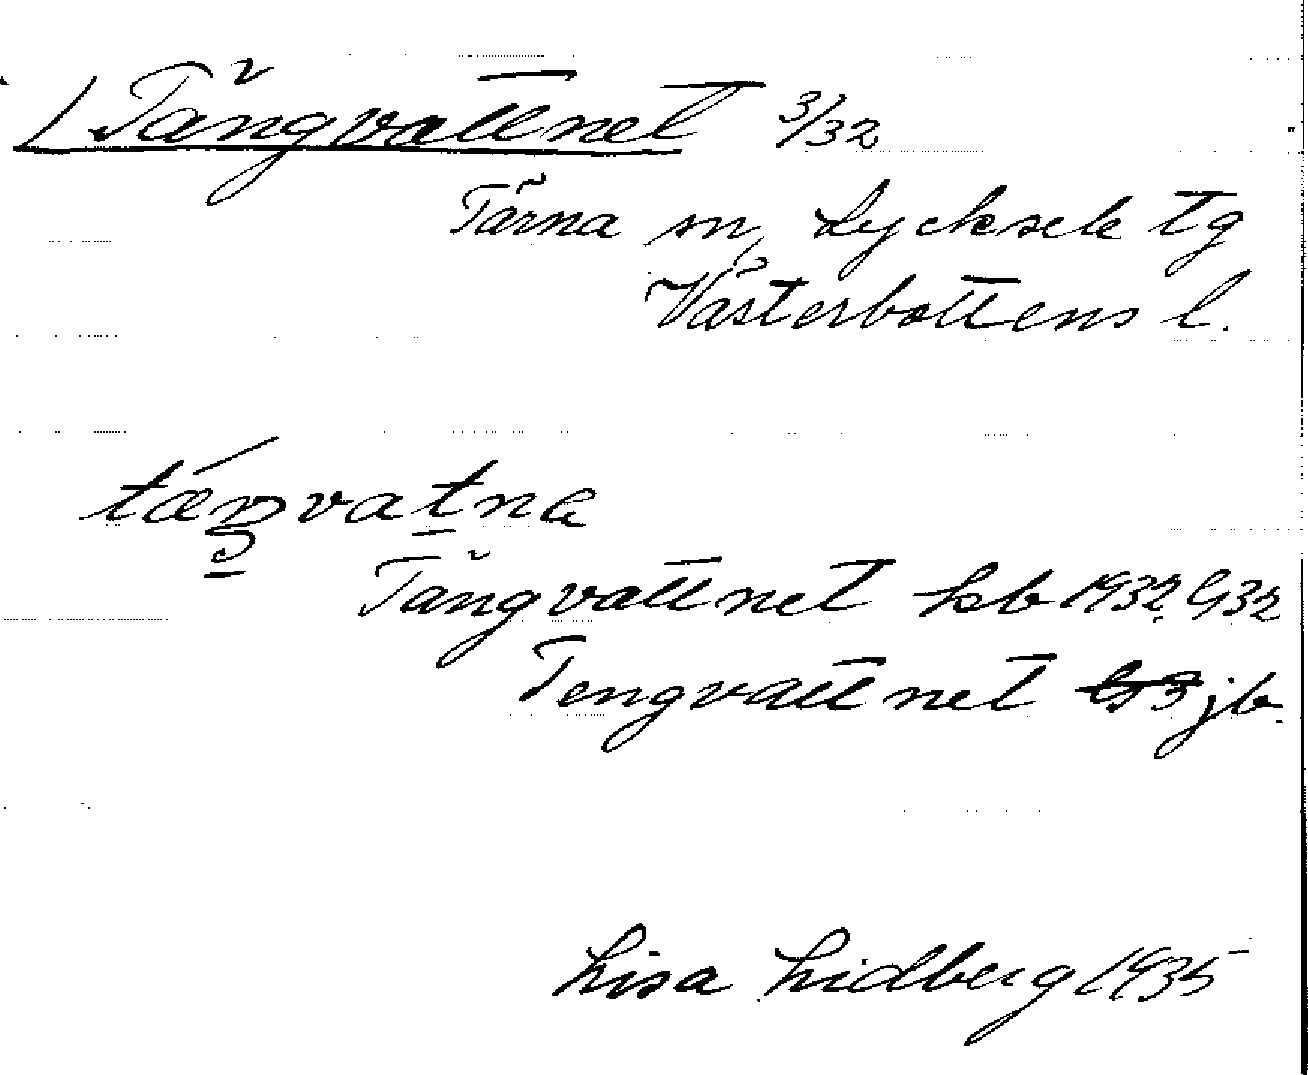 / Tängvattnet 3/32
Tärna sn, Lycksele tg
Västerbottens l.
tǽŋvatna
Tängvattnet kb 1932, G32
Tengvattnet jb.
Lisa Lidberg 1935